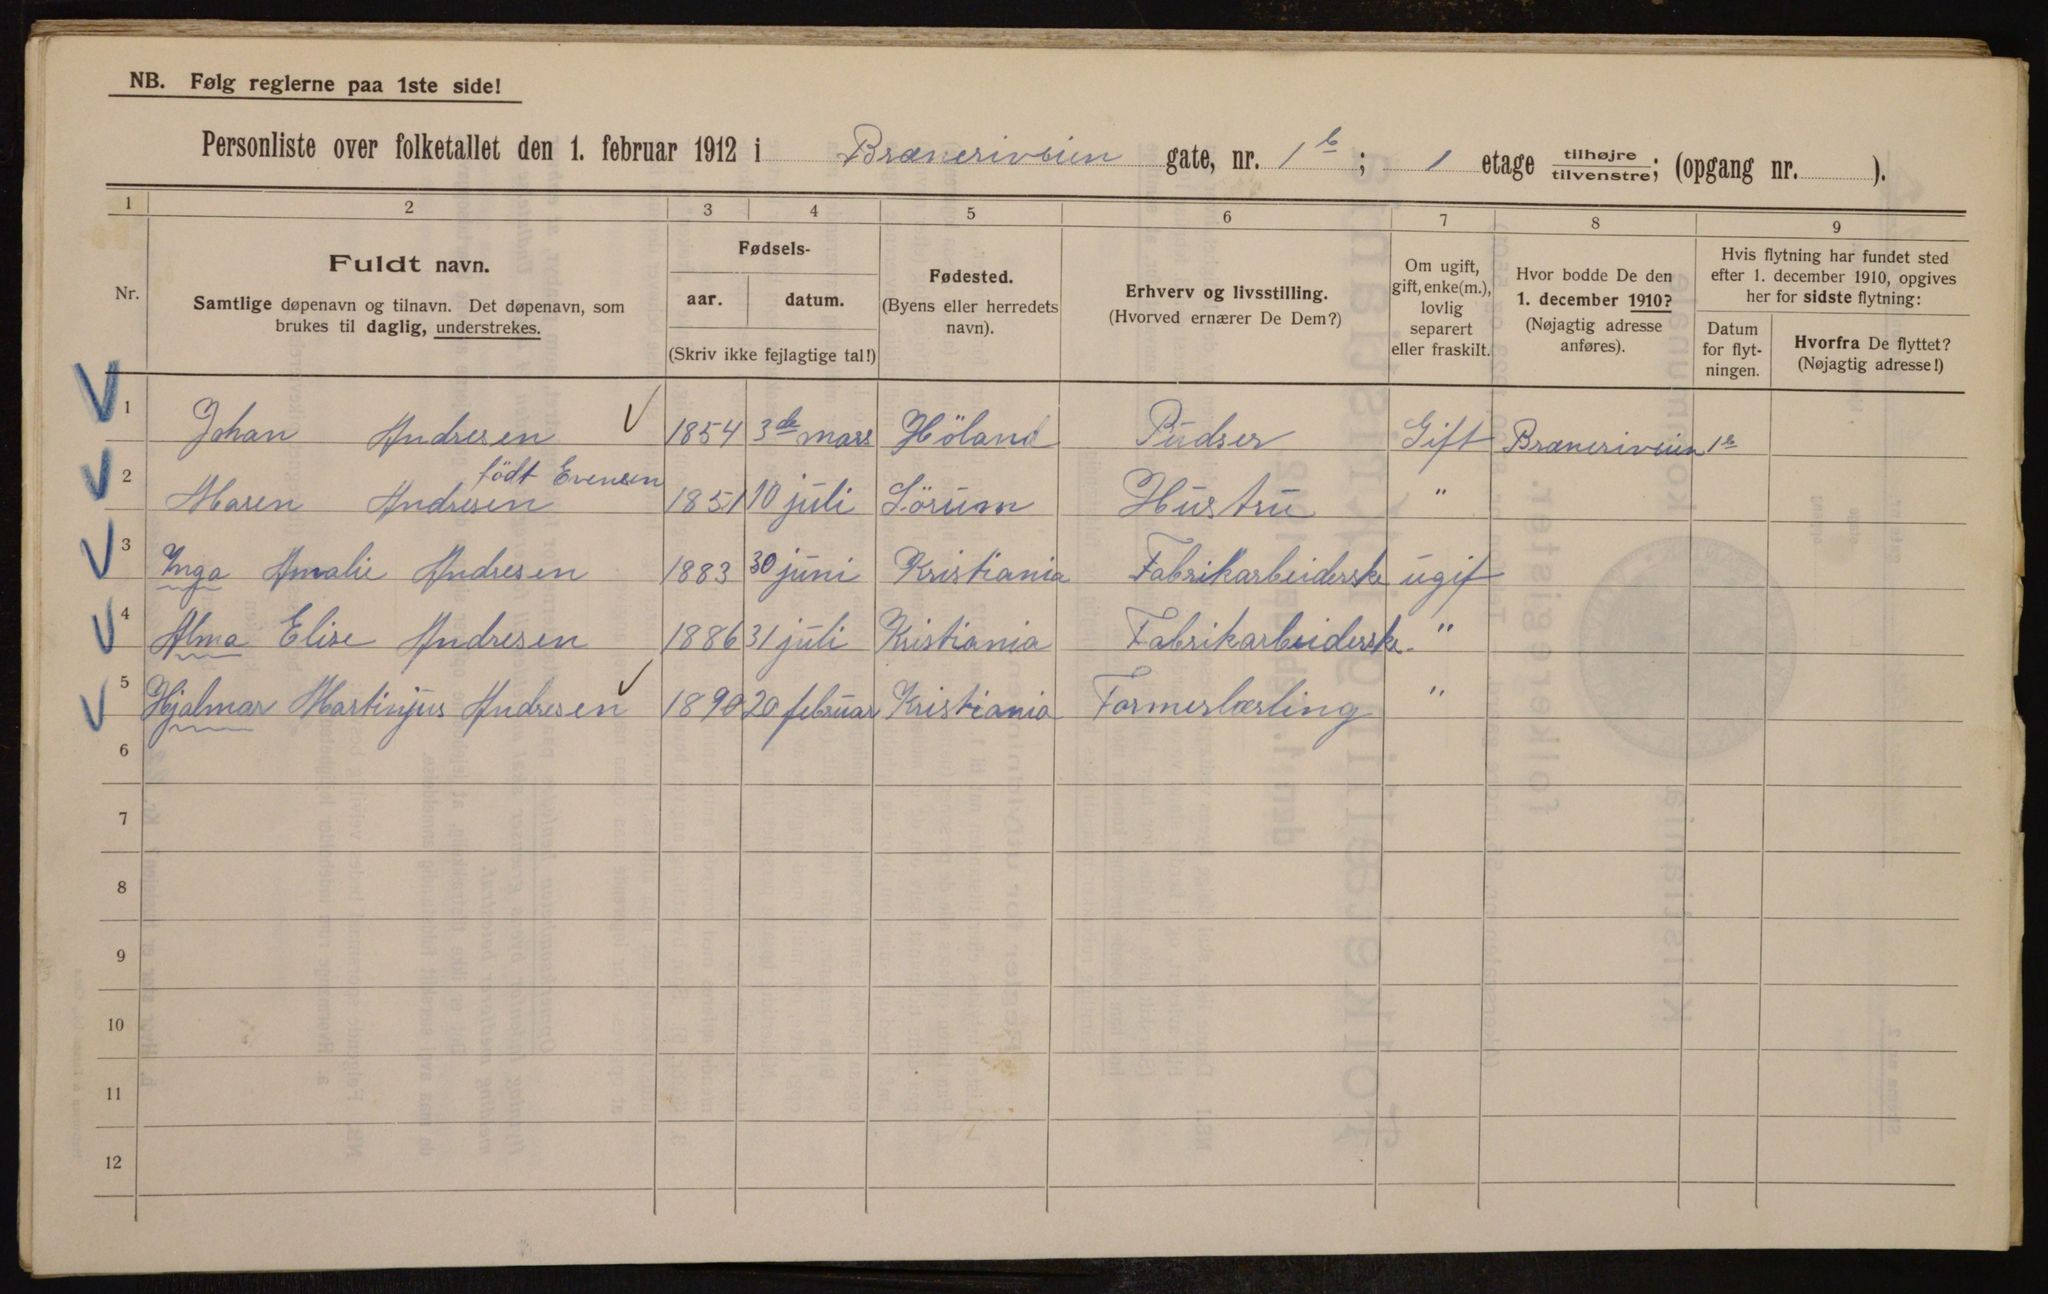 NB. Følg reglerne paa 1ste side!
Personliste over folketallet den 1. februar 1912 i Bræneriveien gate, nr. 1b; 1 etage tilhøjre/tilvenstre; (opgang nr. ).
1 2 3 4 5 6 7 8 9
Nr.
Fuldt navn.
Samtlige døpenavn og tilnavn. Det døpenavn, som
brukes til daglig, understrekes.
Fødsels-
aar. datum.
(Skriv ikke fejlagtige tal!)
Fødested.
(Byens eller herredets
navn).
Erhverv og livsstilling.
(Hvorved ernærer De Dem?)
Om ugift,
gift, enke(m.),
lovlig
separert
eller fraskilt.
Hvor bodde De den
1. december 1910?
(Nøjagtig adresse
anføres).
Hvis flytning har fundet sted
efter 1. december 1910, opgives
her for sidste flytning:
Datum
for flyt-
ningen.
Hvorfra De flyttet?
(Nøjagtig adresse!)
1 Johan Andresen 1854 3de mars Höland Pudser Gift Bræneriveien 1b
födt Evensen
2 Maren Andresen 1851 10 juli Sörum Hustru "
3 Inga Amalie Andresen 1883 30 juni Kristiania Fabrikarbeiderske ugift
4 Alma Elise Andresen 1886 31 juli Kristiania Fabrikarbeiderske "
5 Hjalmar Martinjus Andresen 1890 20 februar Kristiania Formerlærling "
6
7
8
9
10
11
12